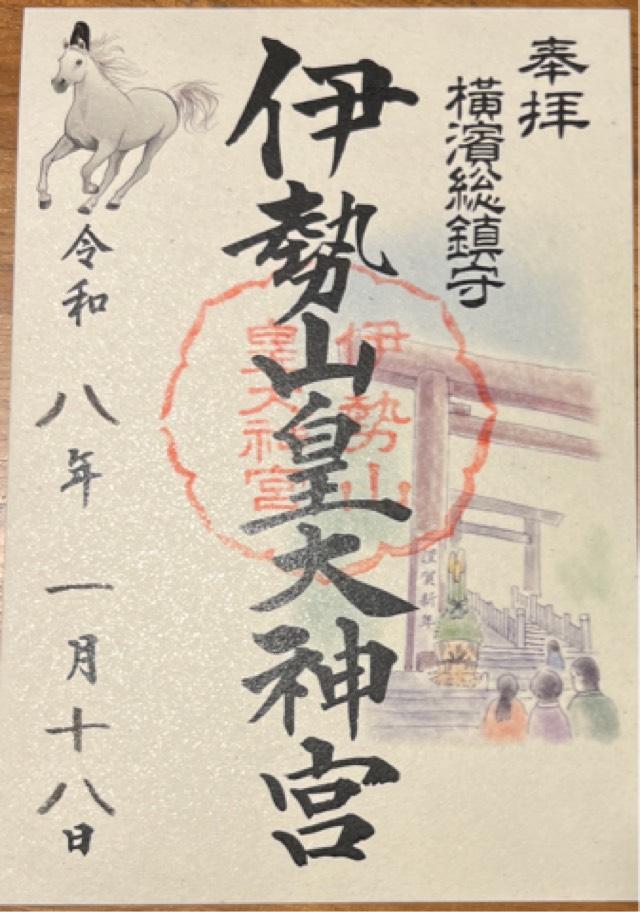 奉拝
横濱総鎮守
伊勢山皇大神宮
伊勢山
皇大神宮
謹賀新年
令和八年一月十八日